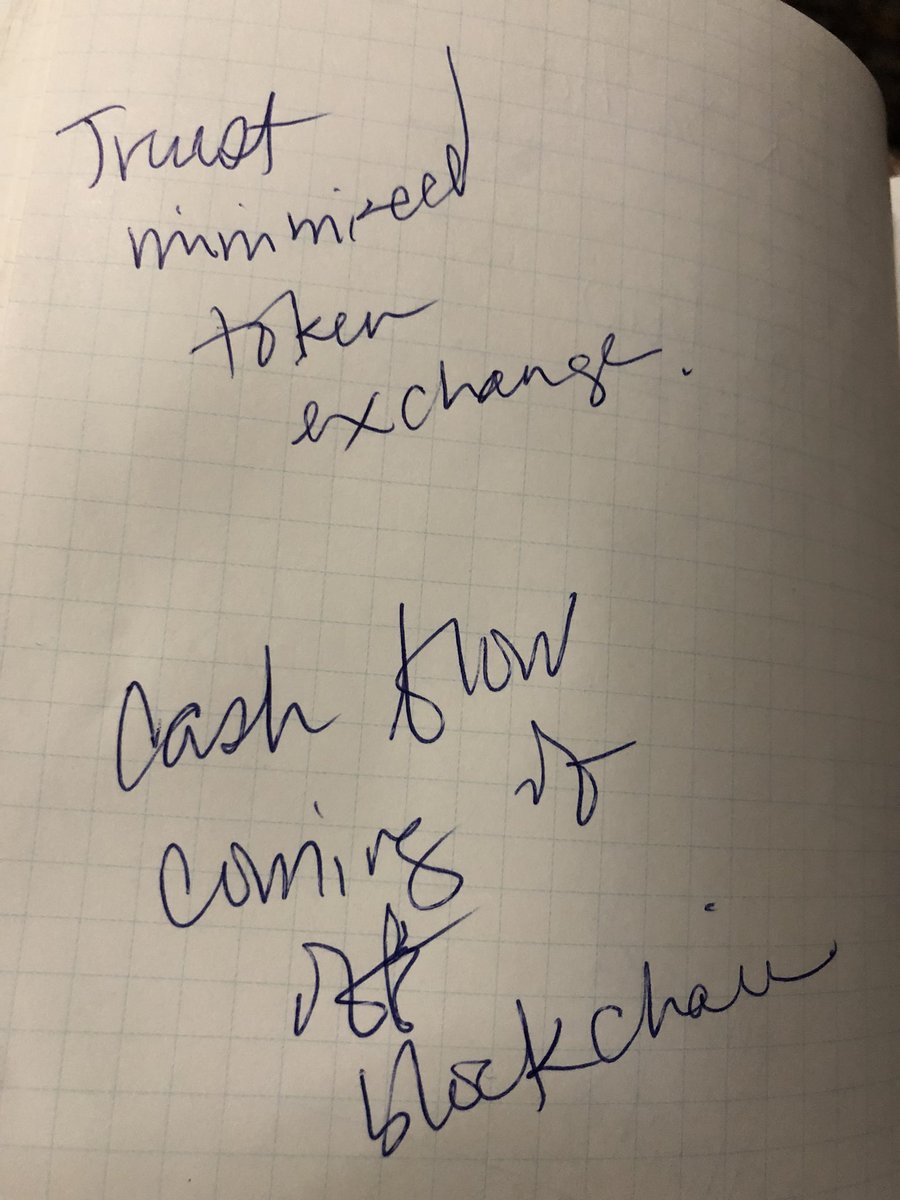 Trust
minimized
token
exchange.
Cash flow
coming of
off
blockchain